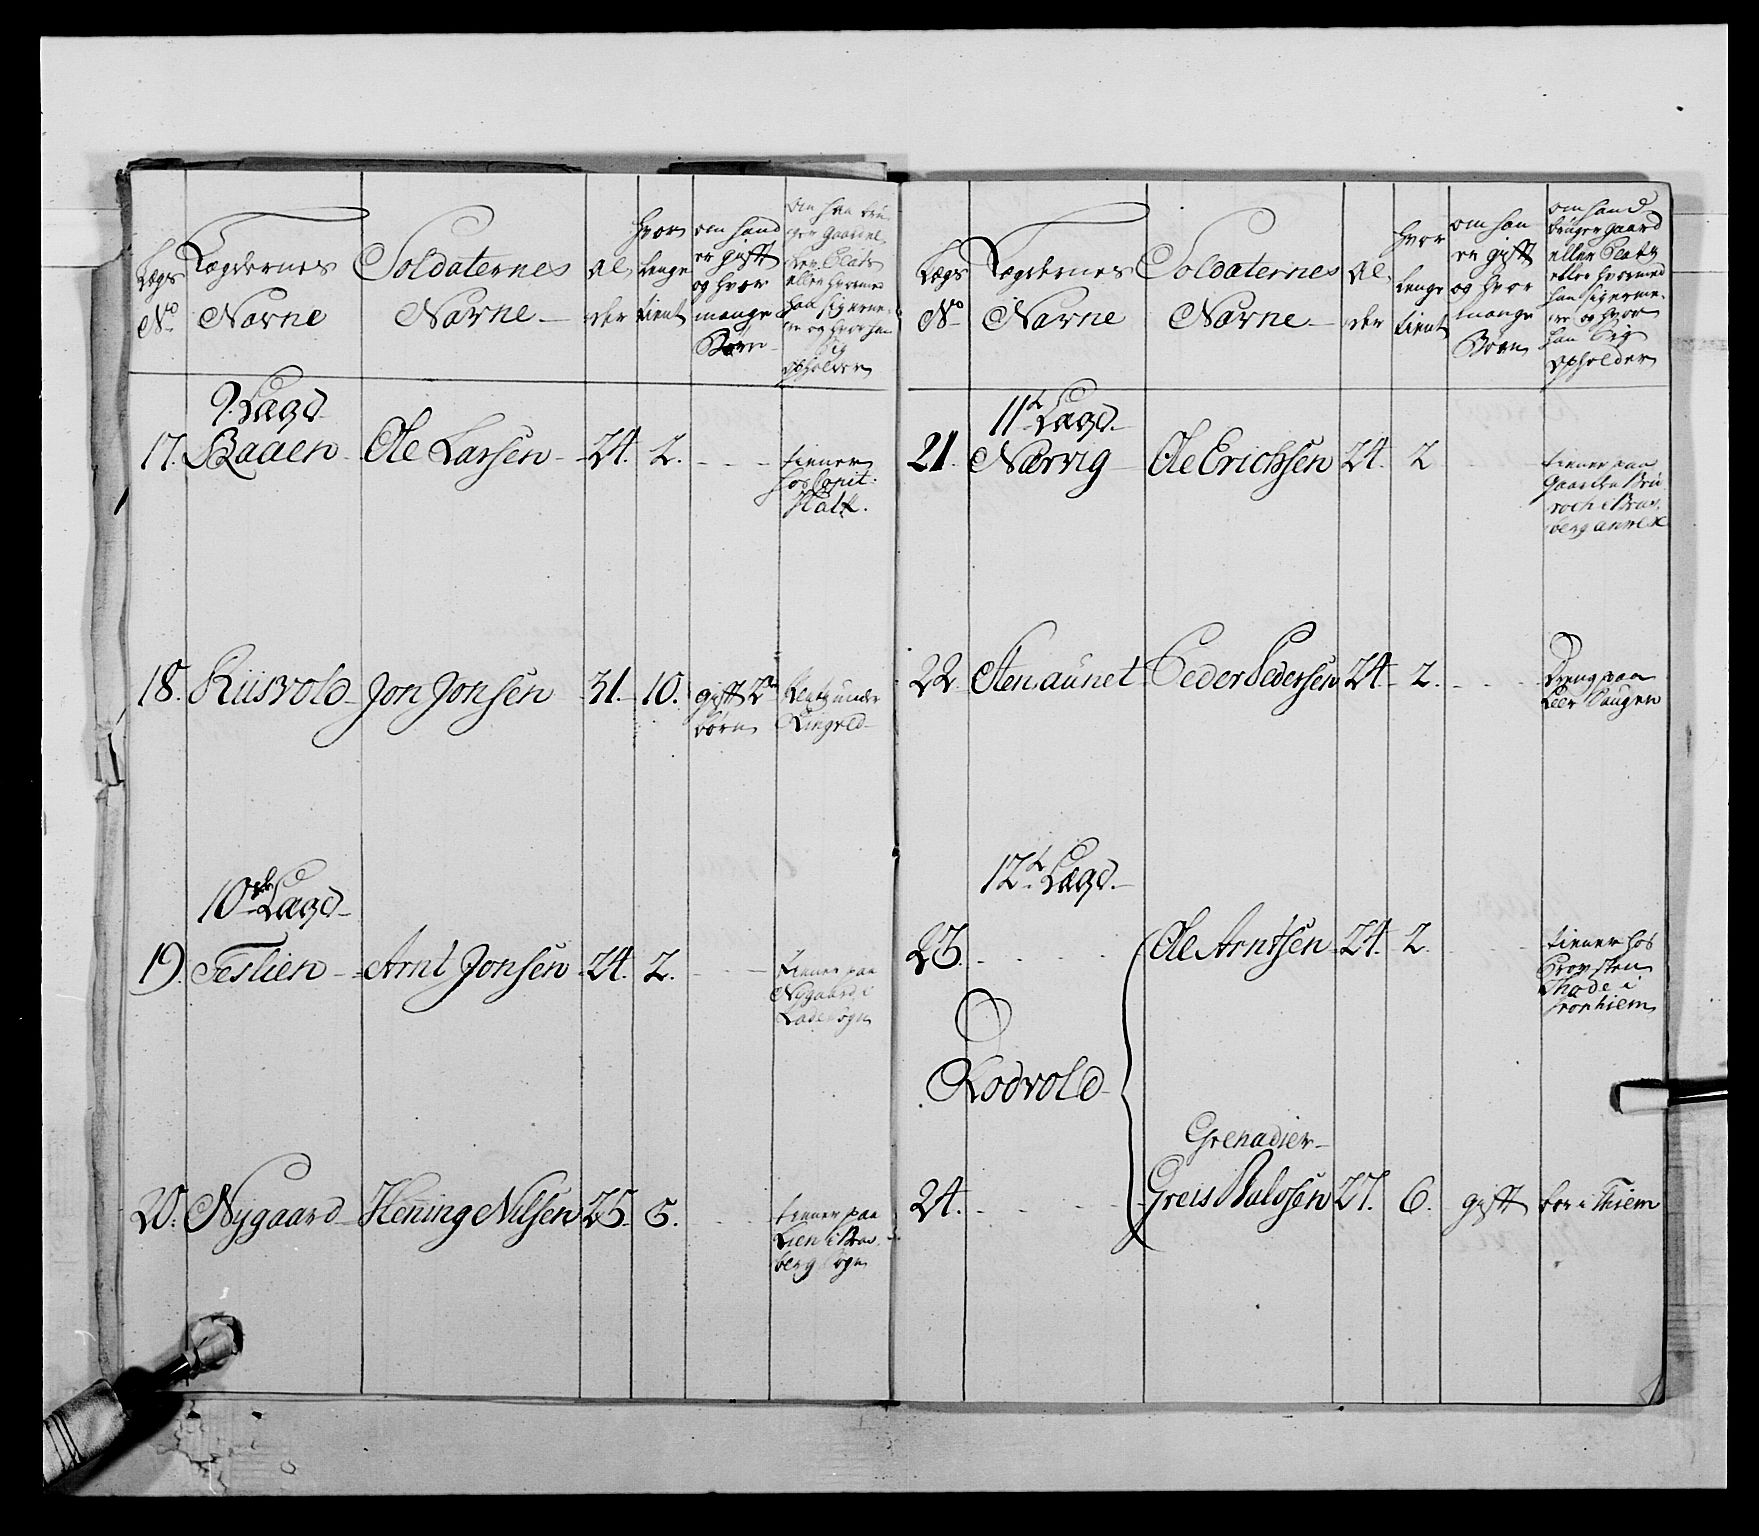 Lægs
No
Lægdernes
Navne
Soldaternes
Navne
Al
der
hvor
lenge
tient
om hand
er gift
og hvor
mange
Børn
om han bru
ger gaard el
ler Plads
eller hvormed
han sig erne-
rer og hvor han
sig
opholder
9. Lægd
17. Baaen Ole Larsen 24. 2. tiener
hos Capit:
18. Riisvold Jon Jonsen 31. 10. gift 2
børn
Plads under
Ringvold
10de Lægd
19. Teslien Arnt Jonsen 24. 2. tiener paa
Nygaard i
Lade Sogn
20. Nygaard Hening Nilsen 25. 5. tiener paa
Lien i Bras-
berg Sogn
Lægs
No
Lægdernes
Navne
Soldaternes
Navne
Al
der
hvor
lenge
tient
om han
er gift
og hvor
mange
Børn
om hand
bruger gaard
eller Plads
eller hvormed
han sig erne-
rer og hvor
han sig
opholder
11te Lægd
21. Nervig Ole Erichsen 24. 2 tiener paa
gaarden
berg annex
22. Stenaunet Peder Pedersen 24. 2. Dreng paa
Leer Haugen
12te Lægd
23. Ole Arntsen 24. 2. tiener hos
Provsten
Thode i
Tronhiem
Rodvold
Grenadier
24. Greis 27. 6. gift boer i Thiem